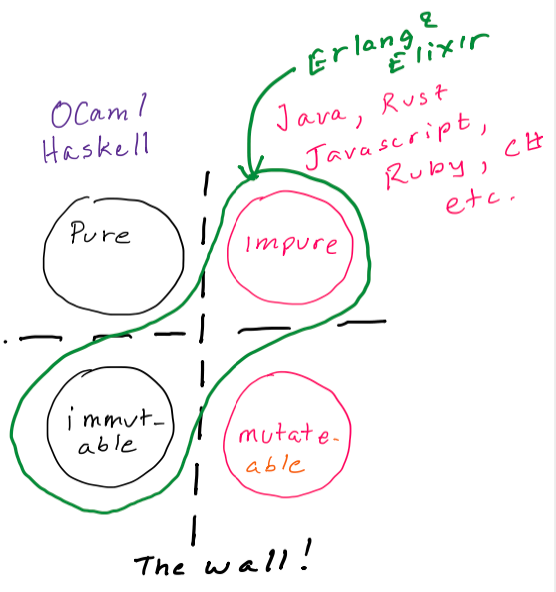 Erlang &
Elixir
OCaml
Haskell
Java, Rust
Javascript,
Ruby, C#
etc.
Pure
impure
immut-
able
mutate-
able
The wall!